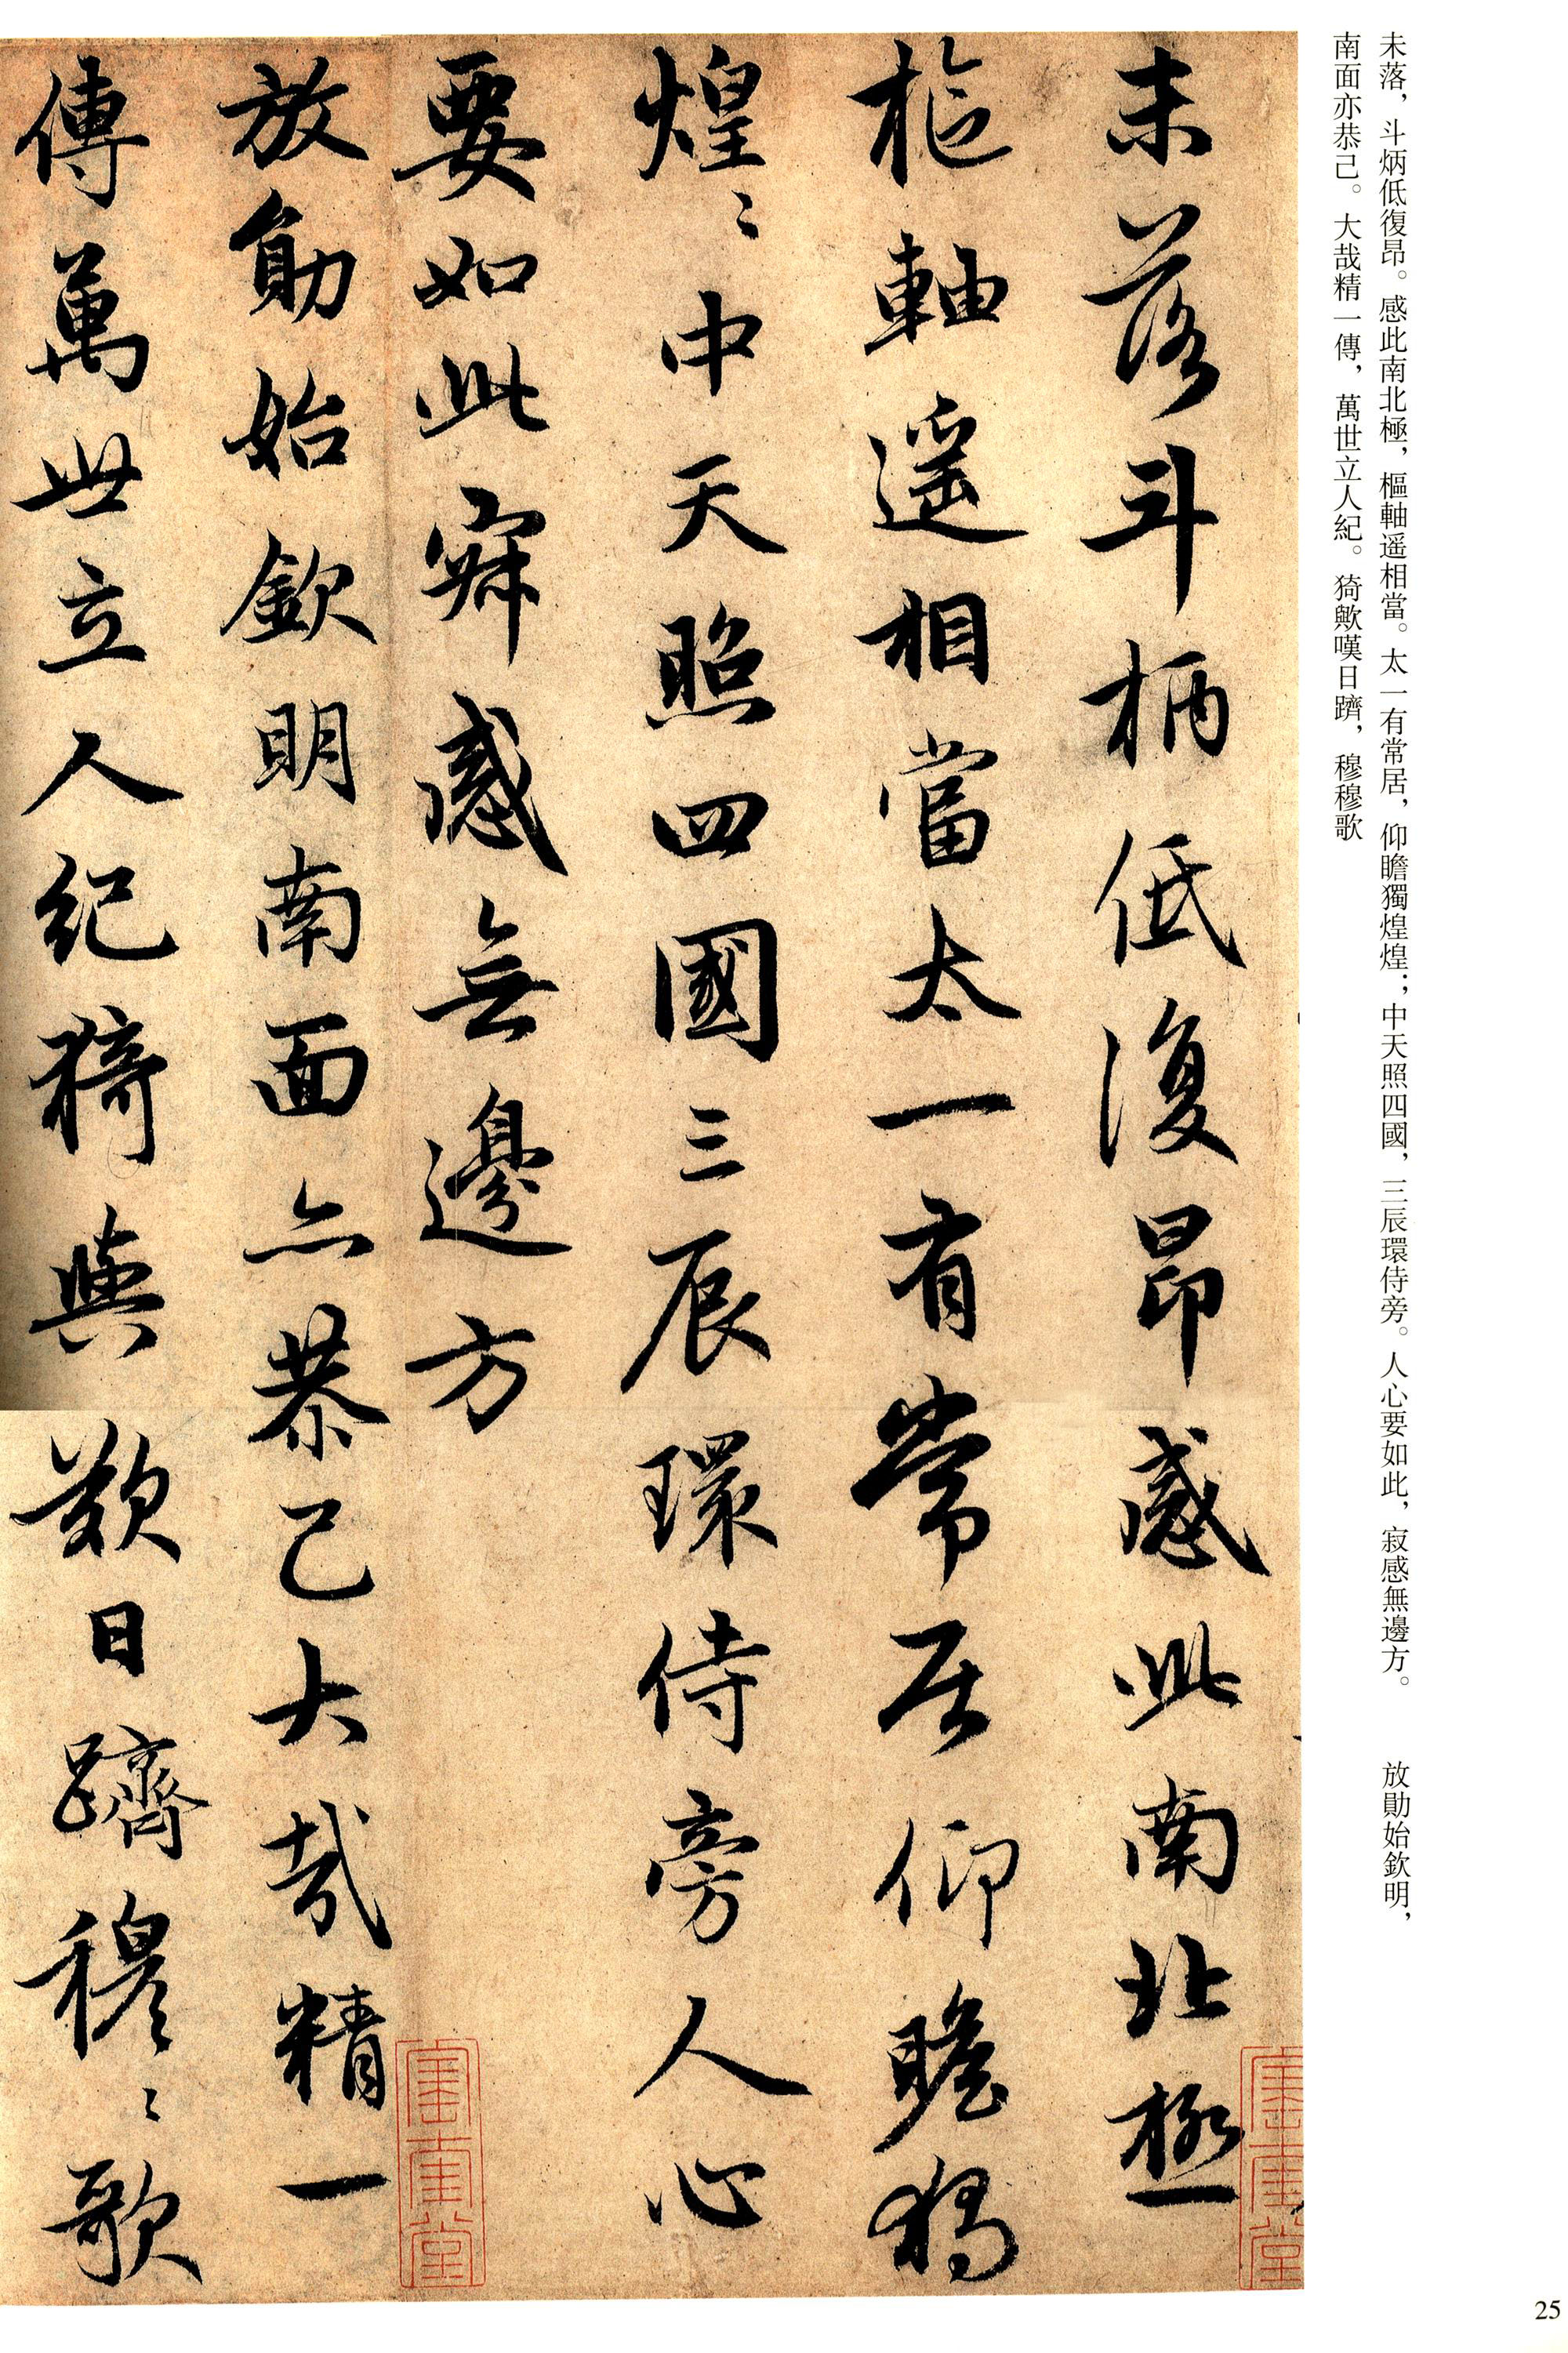 未落，斗炳低復昂。感此南北極，樞軸遥相當。太一有常居，仰瞻獨煌煌；中天照四國，三辰環侍旁。人心要如此，寂感無邊方。　放勛始欽明，
南面亦恭己。大哉精一傳，萬世立人紀。猗歟嘆日躋，穆穆歌
未落斗柄低復昂感此南北極
樞軸遥相當太一有常居仰瞻獨
煌〻中天照四國三辰環侍旁人心
要如此寂感無邊方
放勛始欽明南面亦恭己大哉精一
傳萬世立人紀猗與歎日躋穆〻歌
25